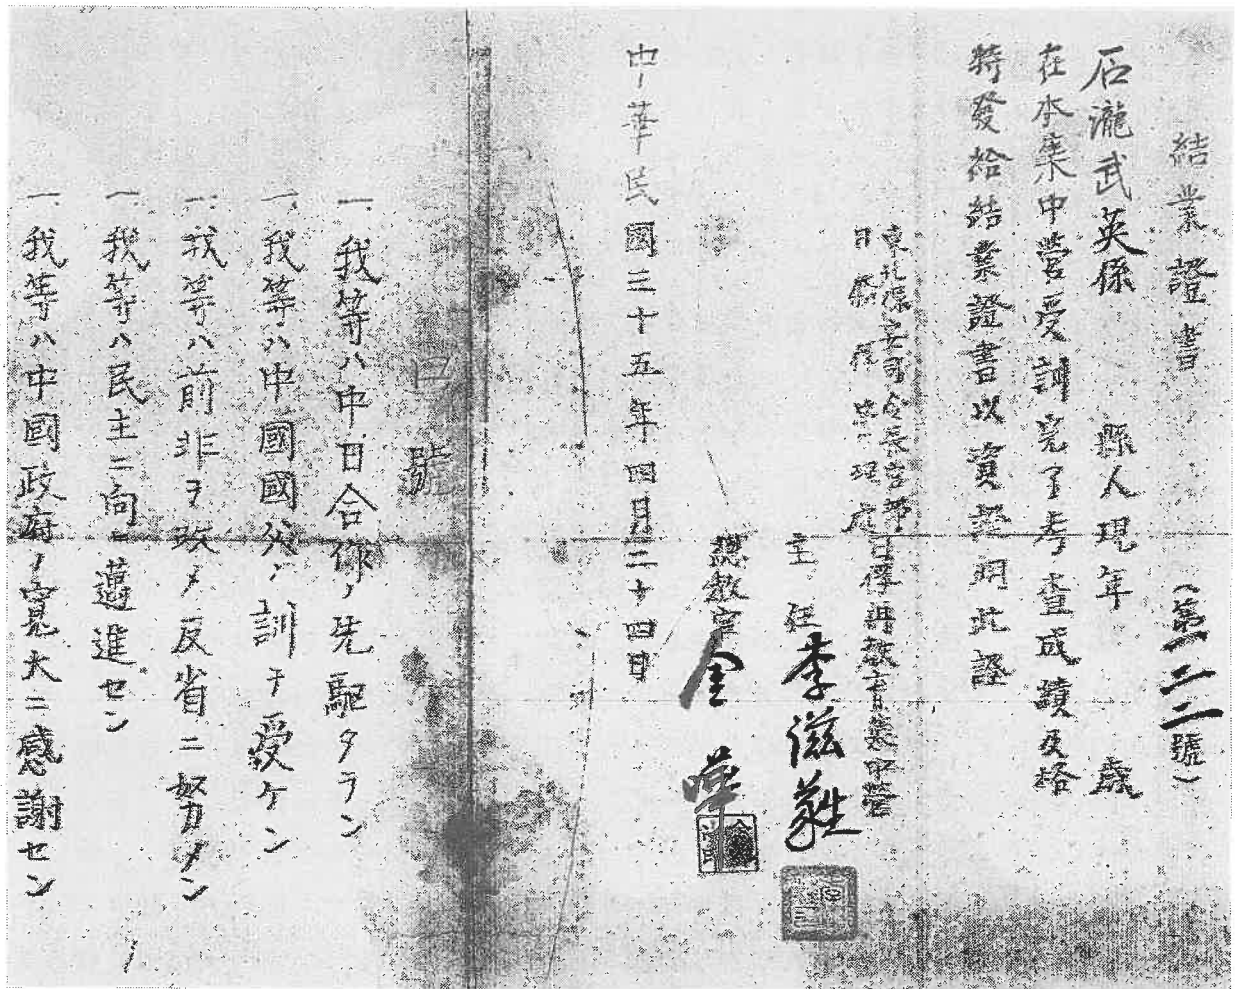 結業證書
(第一二二號)
石瀧武英係 縣人現年 歲
在本集中營受訓完了考查成蹟及格
特發給結業證書以資證明此證
東北保安司令長官部
日僑俘管理處日俘再教育集中營
主任 李滋
總教官 金曄
中華民國三十五年四月二十四日
口號
一、我等ハ中日合作ノ先駆タラン
一、我等ハ中國國父ノ訓ヲ受ケン
一、我等ハ前非ヲ改メ反省ニ努メン
一、我等ハ民主ニ向ヒ邁進セン
一、我等ハ中國政府ノ寛大ニ感謝セン